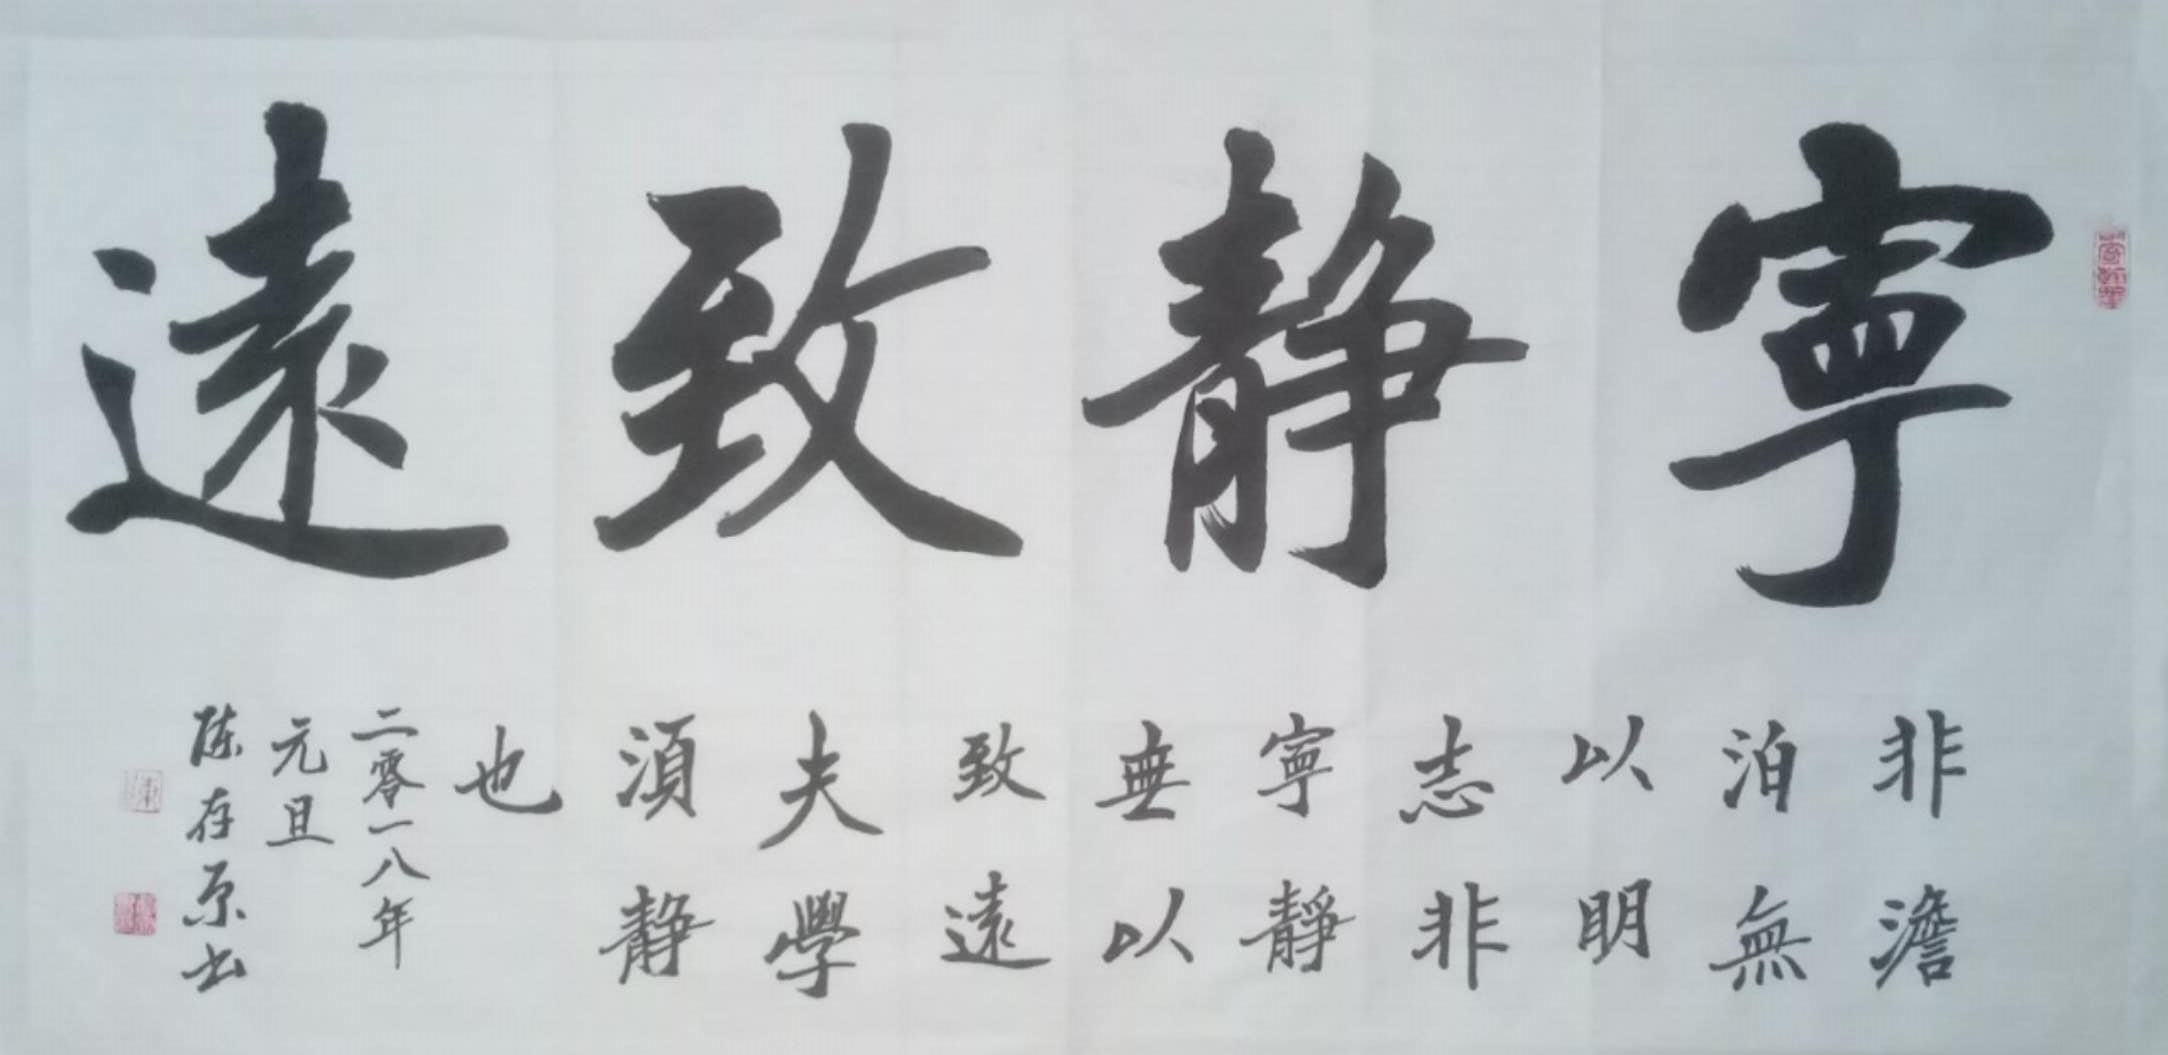 寧静致遠
非澹
泊無
以明
志非
寧靜
無以
致遠
夫學
須静
也
二零一八年
元旦
陈存原书